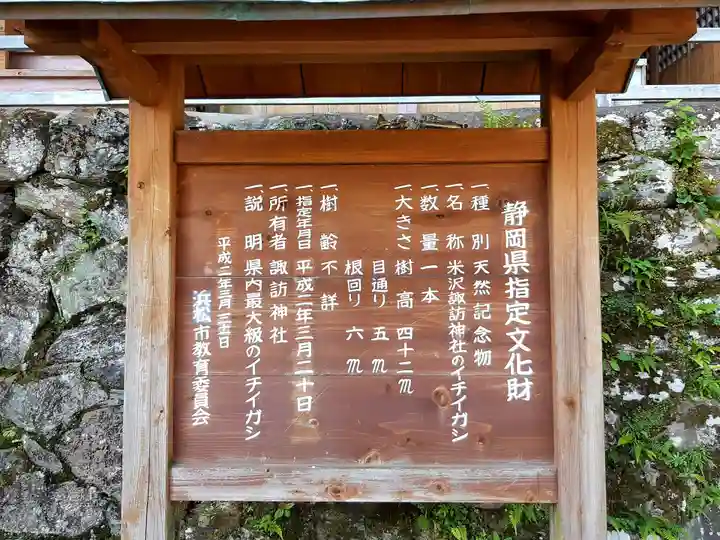 静岡県指定文化財
一、種別 天然記念物
一、名称 米沢諏訪神社のイチイガシ
一、数量 一本
一、大きさ 樹高 四十二m
目通り 五m
根回り 六m
一、樹齢 不詳
一、指定年月日 平成二年三月二十日
一、所有者 諏訪神社
一、説明 県内最大級のイチイガシ
平成二年三月三十五日
浜松市教育委員会